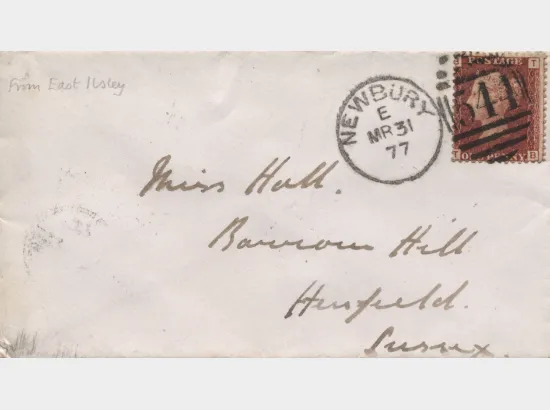 From East Ilsley
POSTAGE
T
541
ONE PENNY
T B
NEWBURY
E
MR 31
77
Miss Hall.
Barrow Hill
Henfield.
Sussex.